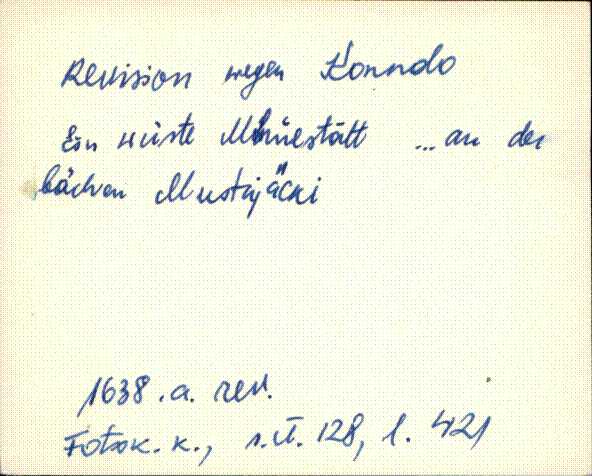 Revision wegen Konndo
Ein wüste Mühlestätt ... an der
bächen Mustajäcki
1638.a. rev.
Fotok. k., s.ü. 128, l. 421